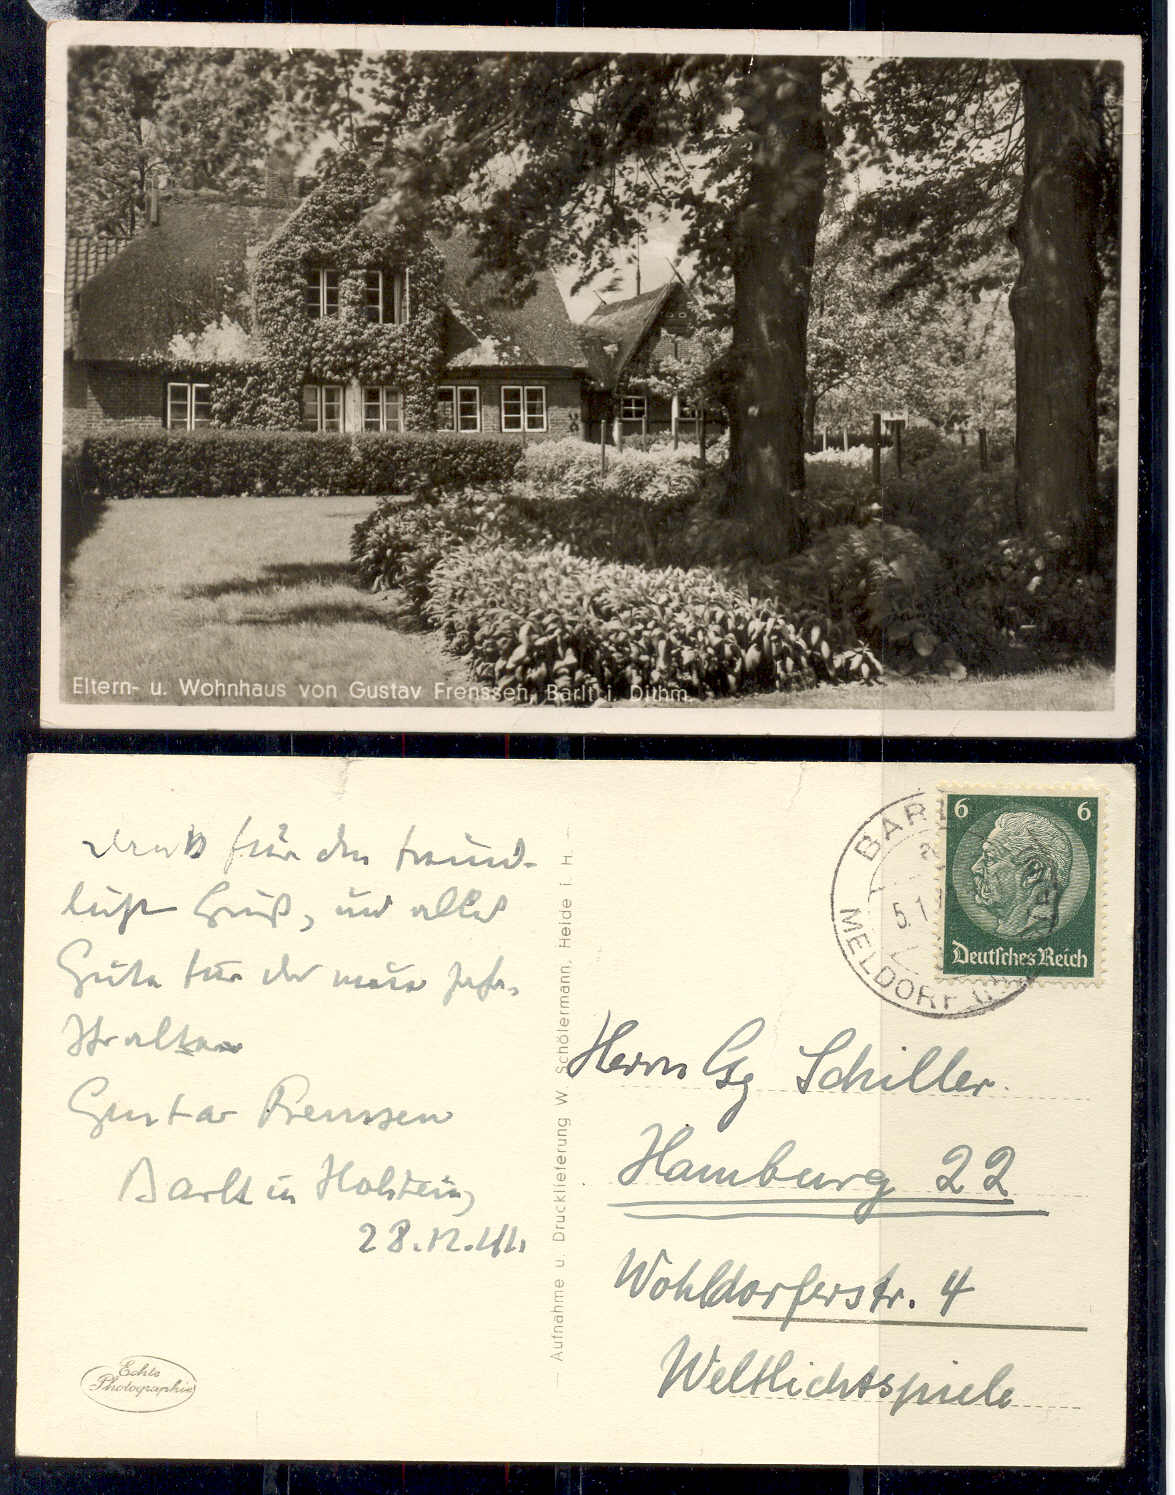 Eltern- u. Wohnhaus von Gustav Frenssen, Barlt i. Dithm.
Dank für den freund-
lichen Gruß, und alles
Gute für das neue Jahr.
Ihr alter
Gustav Frenssen
Barlt in Holstein,
28.12.41.
Echte
Photographie
Aufnahme u. Drucklieferung W. Schölermann, Heide i. H.
BARL
5.1.
MELDORF
6 6
Deutsches Reich
Herrn Gg Schiller.
Hamburg 22
Wohldorferstr. 4
Weltlichtspiele